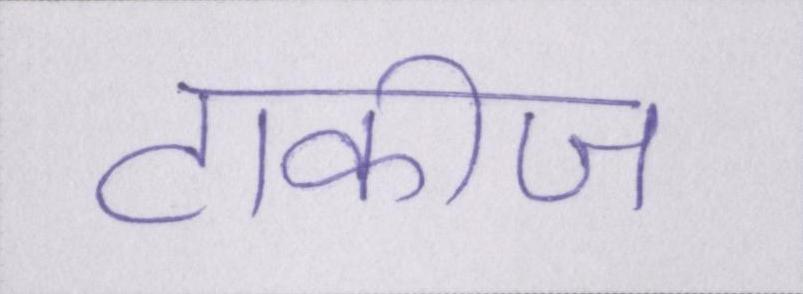 टाकीज